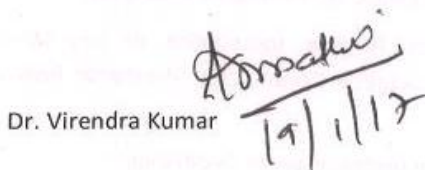 Dr. Virendra Kumar
19/1/17